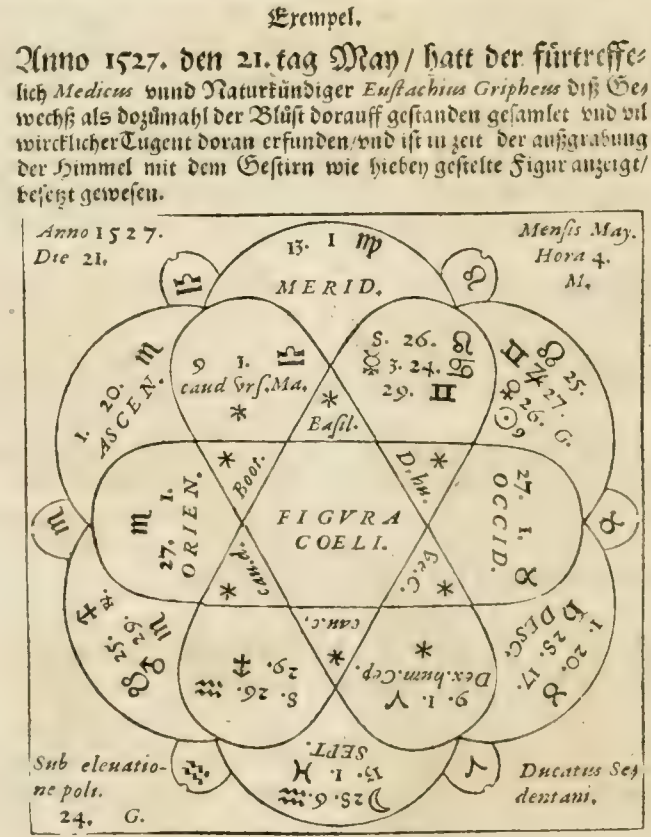 Exempel.
Anno 1527. den 21. tag May / hatt der fürtreffe⸗
lich Medicus vnnd Naturkündiger Eustachius Gripheus diß Ge⸗
wechß als dozůmahl der Blůst dorauff gestanden gesamlet vnd vil
wircklicher Tugent doran erfunden / vnd ist in zeit der außgrabung
der Himmel mit dem Gestirn wie hieben gestelte Figur anzeigt /
besetzt gewesen.
Anno 1527.
Die 21.
Mensis May.
Hora 4.
M.
13. 1 ♍
MERID.
♎
♌
9 1. ♎
caud vrs. Ma.
S. 26. ♌
☿ 3. 24. ♋
29. ♊
1. 20. ♏
ASCEN.
♊ ☊ 25.
♃ 27.
26. G.
☉ 9
Basil.
Boot.
D. hu.
♏ 27. 1.
ORIEN.
FIGVRA
COELI.
27. 1. ♉
OCCID.
♏
♉
cau.d.
he.C.
cau.c.
25. 29. ♏
1. 20. ♉
DESC.
28. 17.
29. ♐
S. 26. ♒
Dex.hum.Cep.
9. 1. ♈
SEPT.
13. 1. ♓
☽ 28. 6. ♒
♒
♈
Sub eleuatio-
ne poli.
24. G.
Ducatus Se⸗
dentani.